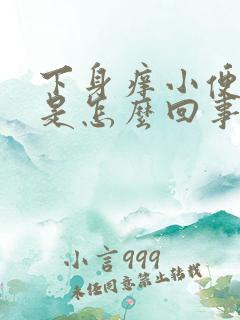 下身痒小便
是怎麼回事
小言999
未经同意禁止转载